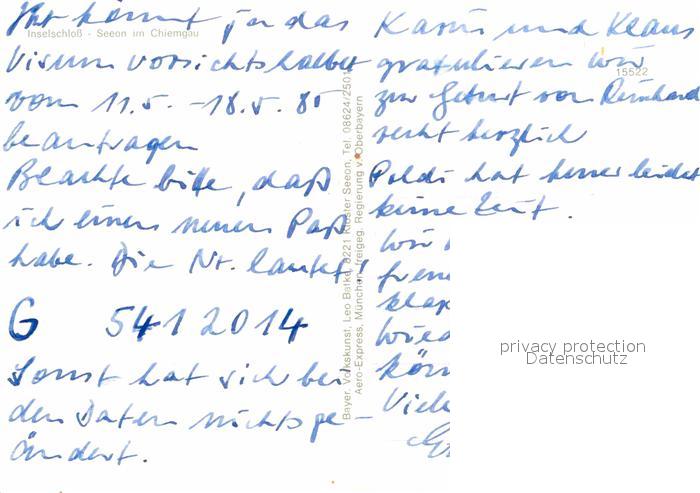 Ihr könnt ja das
Inselschloß - Seeon im Chiemgau
Visum vorsichtshalber
vom 11.5. - 18.5. 85
beantragen
Beachte bitte, daß
ich einen neuen Paß
habe. Die Nr. lautet!
G 541 2014
Sonst hat sich bei
den Daten nichts ge-
ändert.
Bayer. Volkskunst, Leo Batke, 8221 Kloster Seeon, Tel. 08624/2501
Aero-Express, München, freigeg. Regierung v. Oberbayern
Karin und Klaus
gratulieren wir
15522
zur Geburt von Reinhard
recht herzlich
Poldi hat leider
keine Zeit.
Wir
freu
klap
wied
kön
Viele
privacy protection
Datenschutz